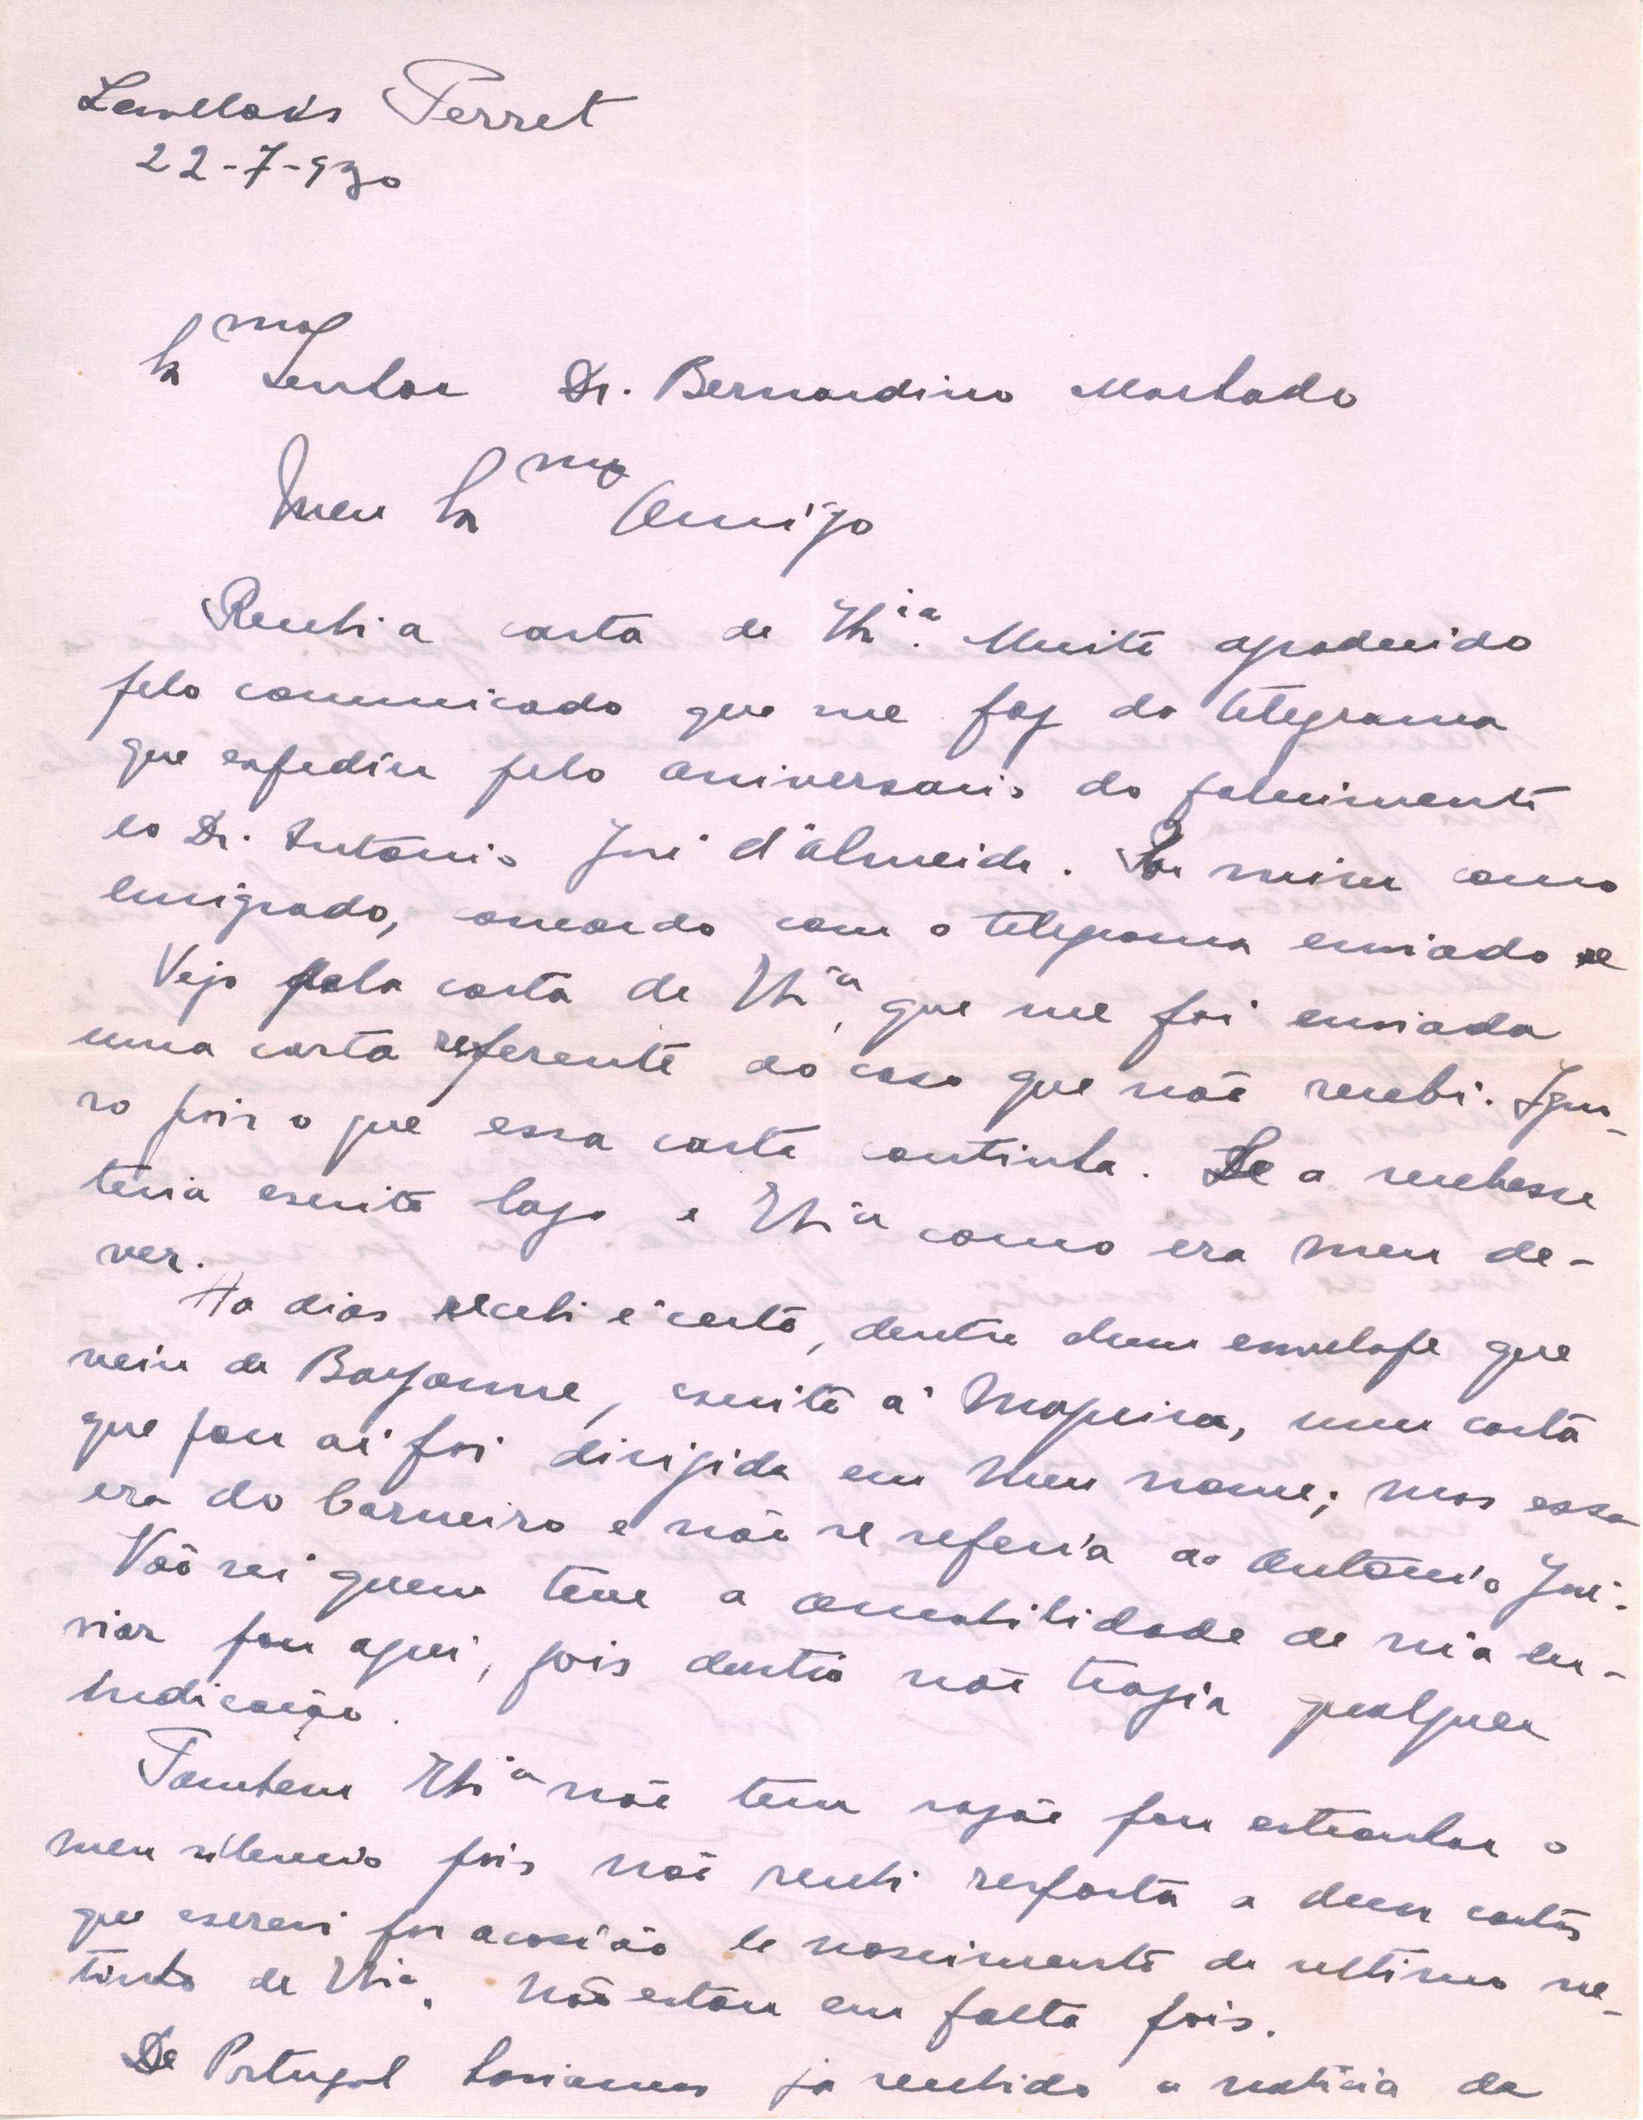 Levallois Perret
22-7-930
Ex.mo Senhor Dr. Bernardino Machado
Meu Ex.mo Amigo
Recebi a carta de V. Ex.ia. Muito agradecido
pelo comunicado que me faz do telegrama
que expediu pelo aniversario do falecimento
do Dr. Antonio José d'Almeida. Por mim como
emigrado, concordo com o telegrama enviado
Vejo pela carta de V. Ex.ia, que me foi enviada
uma carta referente ao caso que não recebi. Igno-
ro pois o que essa carta continha. Se a recebesse
teria escrito logo a V. Ex.ia como era meu de-
ver.
Ha dias recebi é certo, dentro dum envelope que
veiu de Bayonne, escrito á maquina, uma carta
que para aí foi dirigida em meu nome; mas essa
era do Carneiro e não se referia ao Antonio José.
Não sei quem teve a amabilidade de m'a en-
viar para aqui, pois dentro não trazia qualquer
indicação.
Tambem V. Ex.ia não tem razão para estranhar o
meu silencio pois não recebi resposta a duas cartas
que escrevi por ocasião do nascimento do ultimo ne-
tinho de V. Ex.ia. Não estou em falta pois.
De Portugal haviamos ja recebido a noticia da